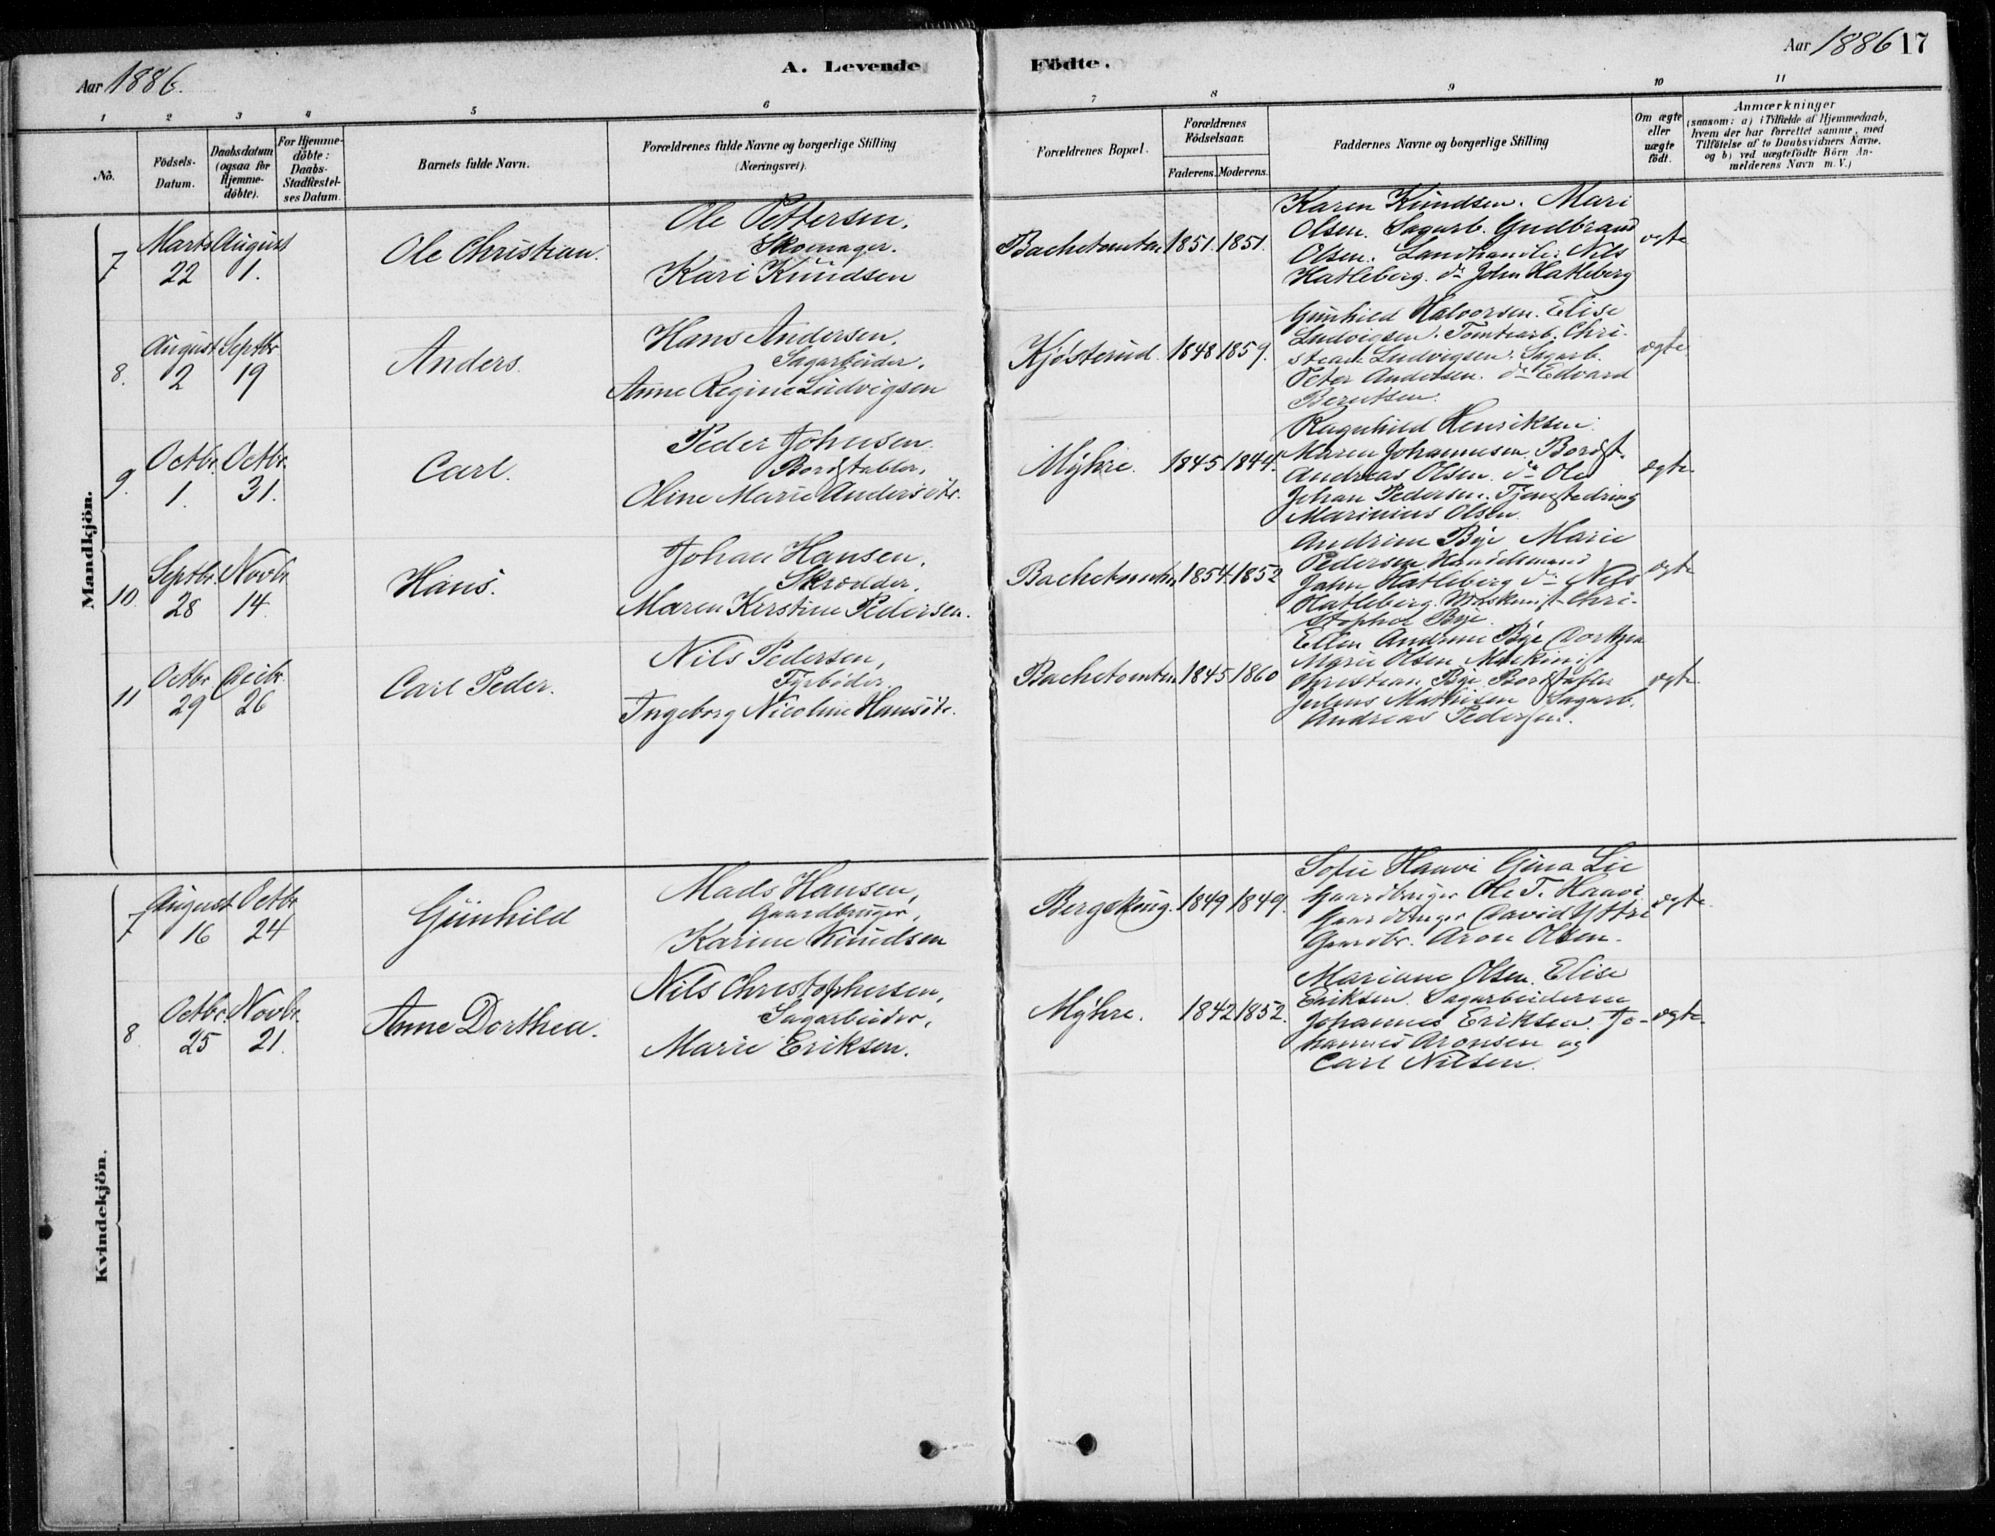 Aar 1886.
A. Levende
Födte.
Aar 1886
17
1
2
3
4
5
6
7
8
9
10
11
No.
Födsels-
Datum.
Daabsdatum
(ogsaa for
Hjemme-
döbte).
For Hjemme-
döbte:
Daabs-
Stadfæstel-
ses Datum.
Barnets fulde Navn.
Forældrenes fulde Navne og borgerlige Stilling
(Næringsvei).
Forældrenes Bopæl.
Forældrenes
Födselsaar.
Faderens.
Moderens.
Faddernes Navne og borgerlige Stilling
Om ægte
eller
uægte
födt.
Anmærkninger
(saasom: a) i Tilfælde af Hjemmedaab,
hvem der har forrettet samme, med
Tilföielse af to Daabsvidners Navne,
og b) ved uægtefödte Börn An-
melderens Navn m. V.)
Mandkjön.
7
Marts
22
August
1.
Ole Christian.
Ole Pettersen.
Skomager.
Kari Knudsen
Bachetomten
1851.
1851.
Karen Knudsen. Mari
Olsen. Sagarb. Gudbrand
Olsen. Landhandler Nils
Hatleberg. do John Hatleberg
ægte
8.
August
2
Septbr
19
Anders.
Hans Andersen,
Sagarbeider.
Anne Regine Ludvigsen
Kjösterud.
1848
1859.
Gunhild Halvorsen. Elise
Ludvigsen. Tomtearb. Chri-
stian Ludvigsen. Sagarb.
Peter Andersen. do Edvard
Berntsen.
ægte.
9.
Octbr.
1.
Octbr.
31.
Carl.
Peder Johnsen
Bordstabler,
Oline Marie Andersdtr.
Mÿhre.
1845
1844.
Ragnhild Henriksen
Maren Johannesen Bordst.
Andreas Olsen. do Ole
Johan Pedersen. Tjenestedreng
Marinius Olsen
ægte.
10.
Septbr.
28
Novbr.
14.
Hans.
Johan Hansen,
Skrædder.
Maren Kerstine Pedersen.
Bachetomten
1854.
1852
Andrine Bye Marie
Pedersen Handelsmand
John Hatleberg do Nils
Hatleberg. Maskinist Chri-
stopher Bye.
ægte
11
Octbr.
29
Decbr.
26
Carl Peder.
Nils Pedersen,
Fyrböder
Ingeborg Nicoline Hansdtr.
Bachetomten
1845
1860
Ellen Andrine Bye Dorthea
Marie Olsen Maskinist
Christian Bye Bordstabler
Julius Mathisen Sagarb.
Andreas Pedersen.
ægte.
Kvindekjön.
7
August
16
Octbr
24
Gunhild
Mads Hansen,
Gaardbruger,
Karine Knudsen
Bergskaug.
1849
1849.
Sofie Haavi Gina Lie
Gaardbruger Ole T. Haavi
Gaardbruger David Yttri
Gaardbr. Aron Olsen.
ægte.
8
Octbr.
25
Novbr.
21.
Anne Dorthea.
Nils Christophersen,
Sagarbeider,
Marie Eriksen.
Mÿhre.
1842
1852.
Mariane Olsen. Elise
Eriksen. Sagarbeiderne
Johannes Eriksen. Jo-
hannes Aronsen og
Carl Nilsen.
ægte.